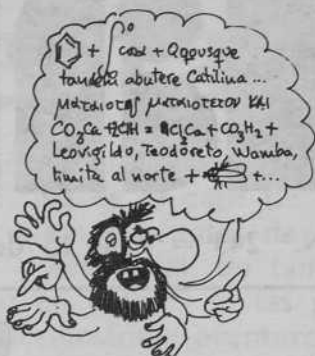 + ∫ cos α + Qqousque
tandem abutere Catilina ...
ματαιοτης ματαιοτετον και
CO₃Ca + 2ClH = Cl₂Ca + CO₃H₂ +
Leovigildo, Teodoreto, Wamba,
limita al norte + + ...